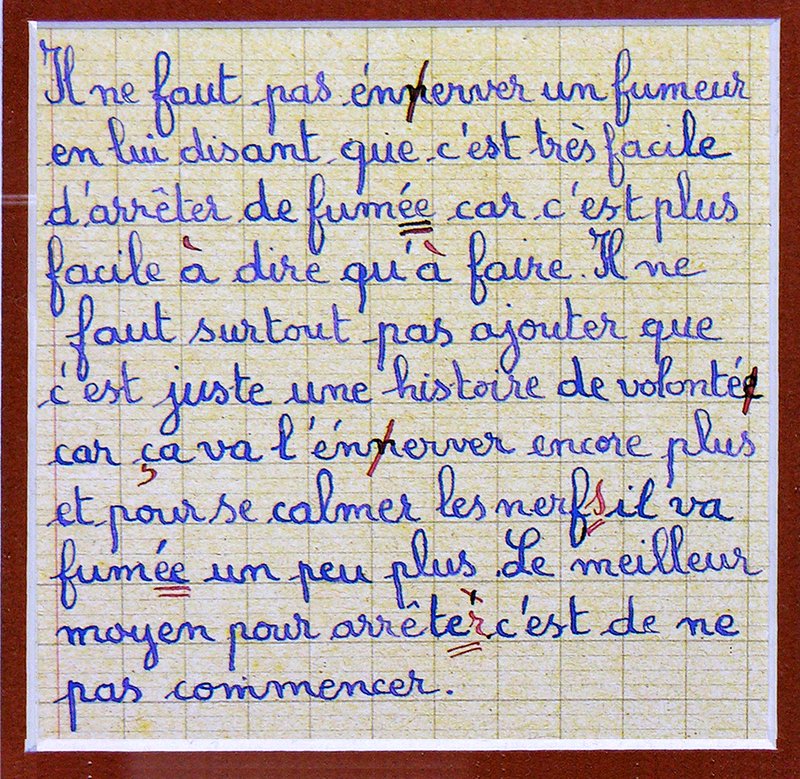 Il ne faut pas énnerver un fumeur
en lui disant que c'est très facile
d'arrêter de fumée car c'est plus
facile à dire qu'à faire. Il ne
faut surtout pas ajouter que
c'est juste une histoire de volontée
car ça va l'énnerver encore plus
et pour se calmer les nerfs il va
fumée un peu plus. Le meilleur
moyen pour arrêter c'est de ne
pas commencer.